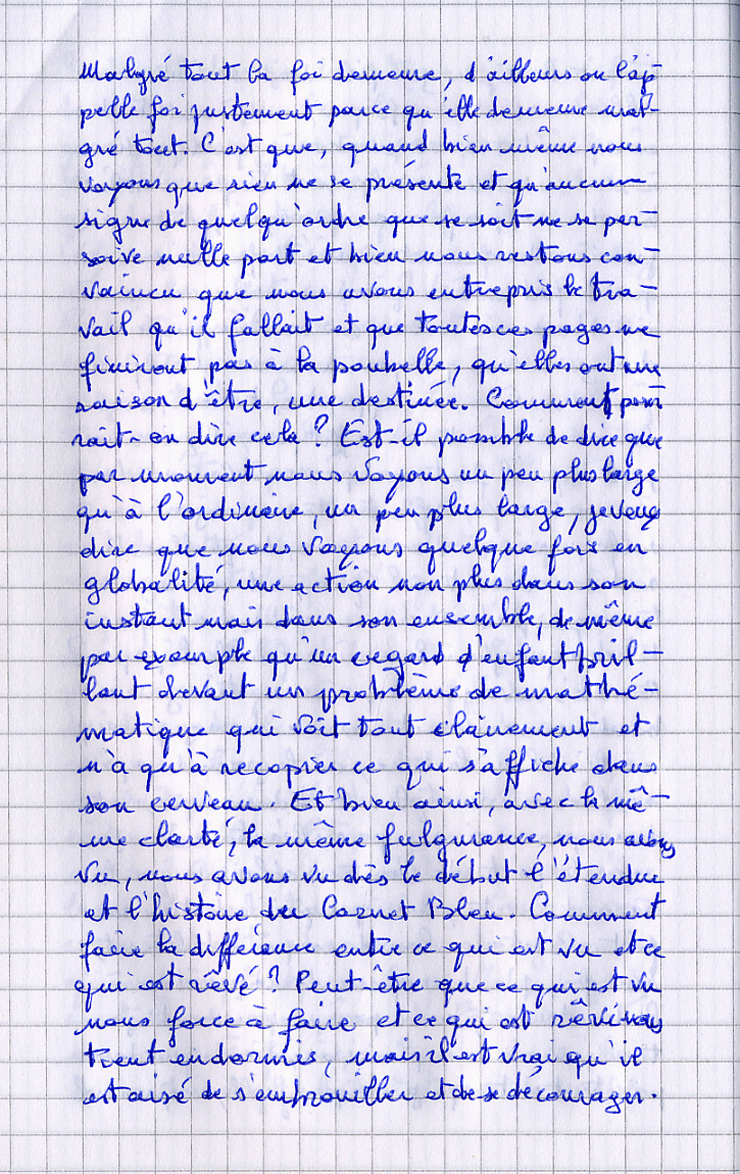 Malgré tout la foi demeure, d'ailleurs on l'ap-
pelle foi justement parce qu'elle demeure mal-
gré tout. C'est que, quand bien même nous
voyons que rien ne se présente et qu'aucun
signe de quelqu'ordre que se soit ne se per-
soive nulle part et bien nous restons con-
vaincu que nous avons entrepris le tra-
vail qu'il fallait et que toutes ces pages ne
finiront pas à la poubelle, qu'elles ont une
raison d'être, une destinée. Comment pour
rait-on dire cela ? Est-il possible de dire que
par moment nous voyons un peu plus large
qu'à l'ordinaire, un peu plus large, je veux
dire que nous voyons quelque fois en
globalité, une action non plus dans son
instant mais dans son ensemble, de même
par exemple qu'un regard d'enfant bril-
lant devant un problème de mathé-
matique qui voit tout clairement et
n'a qu'à recopier ce qui s'affiche dans
son cerveau. Et bien ainsi, avec la mê-
me clarté, la même fulgurance, nous avons
vu, nous avons vu dès le début l'étendue
et l'histoire du Carnet Bleu. Comment
faire la différence entre ce qui est vu et ce
qui est rêvé ? Peut-être que ce qui est vu
nous force à faire et ce qui est rêvé nous
tient endormis, mais il est vrai qu'il
est aisé de s'embrouiller et de se décourager.